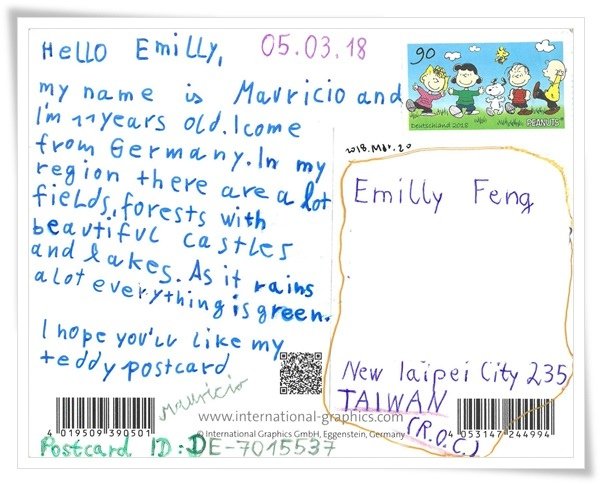 Hello Emilly,
05.03.18
my name is Mavricio and
I'm 11years old. I come
from Germany. In my
region there are a lot
fields, forests with
beautiful castles
and lakes. As it rains
a lot everything is green.
I hope you'll like my
teddy postcard
Mauricio
90
Deutschland 2018
PEANUTS
2018. Mar. 20
Emilly Feng
New Taipei City 235
TAIWAN
(R.O.C.)
www.international-graphics.com
© International Graphics GmbH, Eggenstein, Germany
4 019509 390501
4 053147 244994
Postcard ID: DE-7015537